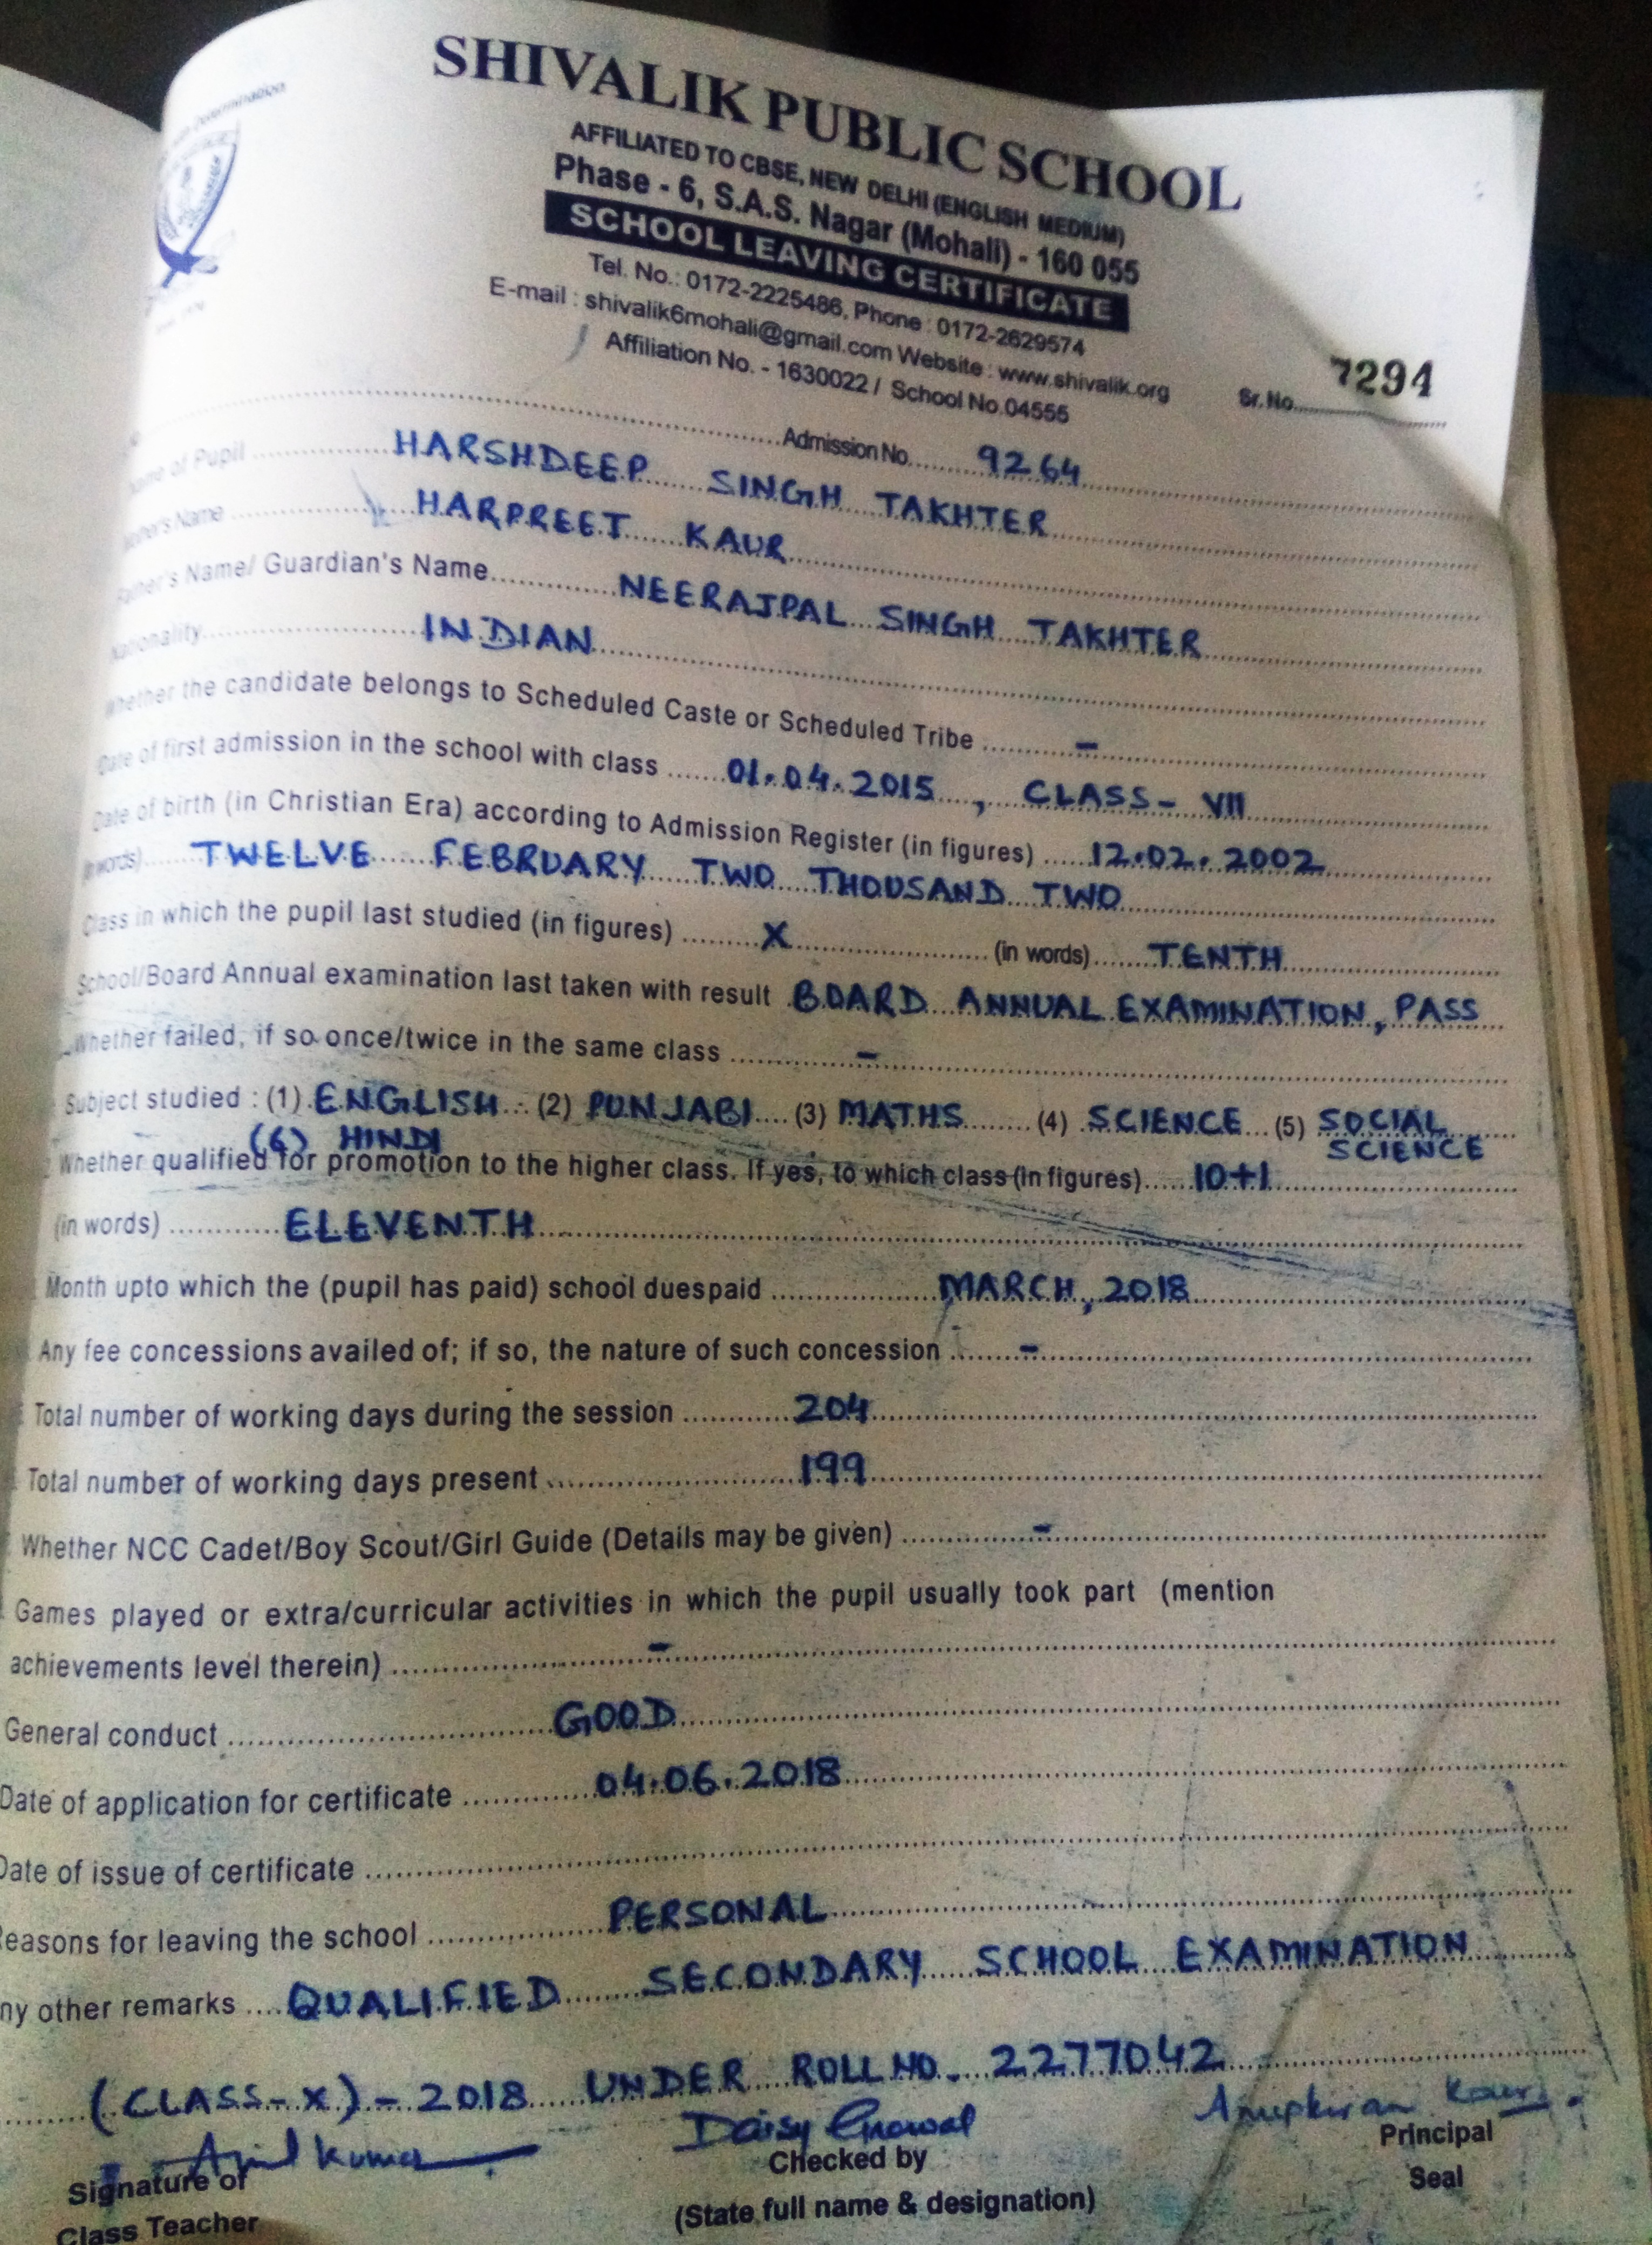 SHIVALIK PUBLIC SCHOOL
AFFILIATED TO CBSE, NEW DELHI (ENGLISH MEDIUM)
Phase - 6, S.A.S. Nagar (Mohali) - 160 055
SCHOOL LEAVING CERTIFICATE
Tel. No.: 0172-2225486, Phone : 0172-2629574
E-mail : shivalik6mohali@gmail.com Website : www.shivalik.org
Affiliation No. - 1630022 / School No.04555
Sr. No. 7294
Admission No. 9264
Name of Pupil HARSHDEEP SINGH TAKHTER
Mother's Name HARPREET KAUR
Father's Name/ Guardian's Name NEERAJPAL SINGH TAKHTER
Nationality INDIAN
Whether the candidate belongs to Scheduled Caste or Scheduled Tribe -
Date of first admission in the school with class 01.04.2015, CLASS- VII
Date of birth (in Christian Era) according to Admission Register (in figures) 12.02.2002
(in words) TWELVE FEBRUARY TWO THOUSAND TWO
Class in which the pupil last studied (in figures) X (in words) TENTH
School/Board Annual examination last taken with result BOARD ANNUAL EXAMINATION, PASS
Whether failed, if so once/twice in the same class -
Subject studied : (1) ENGLISH (2) PUNJABI (3) MATHS (4) SCIENCE (5) SOCIAL SCIENCE
(6) HINDI
Whether qualified for promotion to the higher class. If yes, to which class (in figures) 10+1
(in words) ELEVENTH
Month upto which the (pupil has paid) school duespaid MARCH, 2018
Any fee concessions availed of; if so, the nature of such concession -
Total number of working days during the session 204
Total number of working days present 199
Whether NCC Cadet/Boy Scout/Girl Guide (Details may be given) -
Games played or extra/curricular activities in which the pupil usually took part (mention
achievements level therein) -
General conduct GOOD
Date of application for certificate 04.06.2018
Date of issue of certificate
Reasons for leaving the school PERSONAL
ny other remarks QUALIFIED SECONDARY SCHOOL EXAMINATION
(CLASS-X) - 2018 UNDER ROLL NO. 2277042
Daisy Grewal
Kaur
Signature of
Class Teacher
Checked by
(State full name & designation)
Principal
Seal